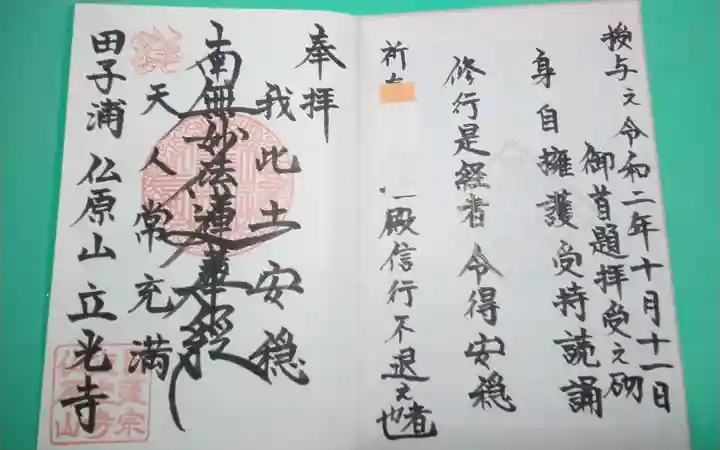 授与之令和二年十月十一日
御首題拝受之砌
身自擁護受持読誦
修行是経者令得安穏
祈
殿信行不退之也
奉拝
我此土安穏
南無妙法蓮華経
天人常充満
田子浦 仏原山 立光寺